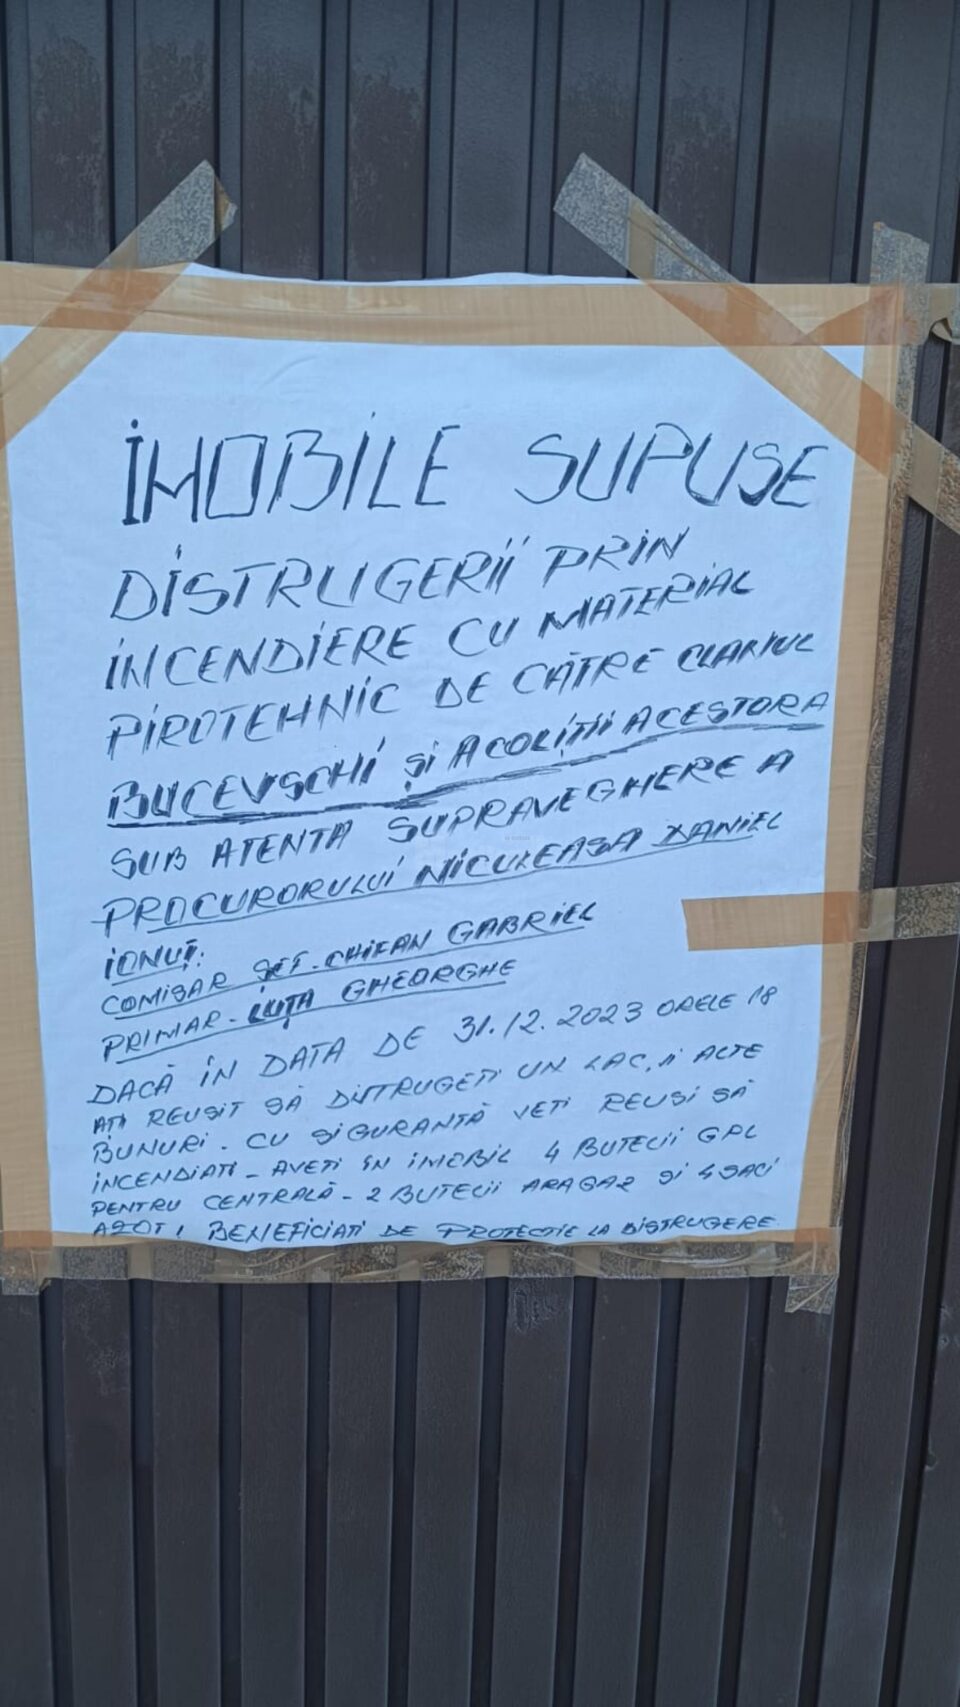 İMOBILE SUPUSE
DİSTRUGERİİ PRİN
İNCENDİERE CU MATERİAL
PİROTEHNİC DE CĂTRE CLANUL
BUCEVSCHİ ȘI ACOLİȚII ACESTORA
SUB ATENTA SUPRAVEGHERE A
PROCURORULUİ NICULEASA DANİEL
İONUȚ:
COMİSAR ȘEF. CHIFAN GABRİEL
PRIMAR - LUȚA GHEORGHE
DACĂ İN DATA DE 31.12.2023 ORELE 18
AȚI REUSİT SĂ DİSTRUGEȚI UN LAC, ȘI ALTE
BUNURİ. CU SİGURANȚĂ VEȚI REUSI SĂ
İNCENDİATI - AVEȚI İN IMOBİL 4 BUTELİİ GPL
PENTRU CENTRALĂ - 2 BUTELİİ ARAGAZ ȘI 4 SACİ
AZOT, BENEFICIATI DE PROTECTIE LA DİSTRUGERE